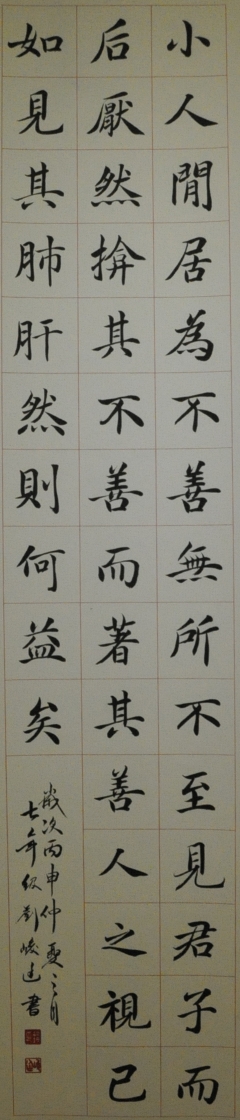 小人閒居為不善無所不至見君子而
后厭然揜其不善而著其善人之視己
如見其肺肝然則何益矣
歲次丙申仲夏六月
七年級劉峻